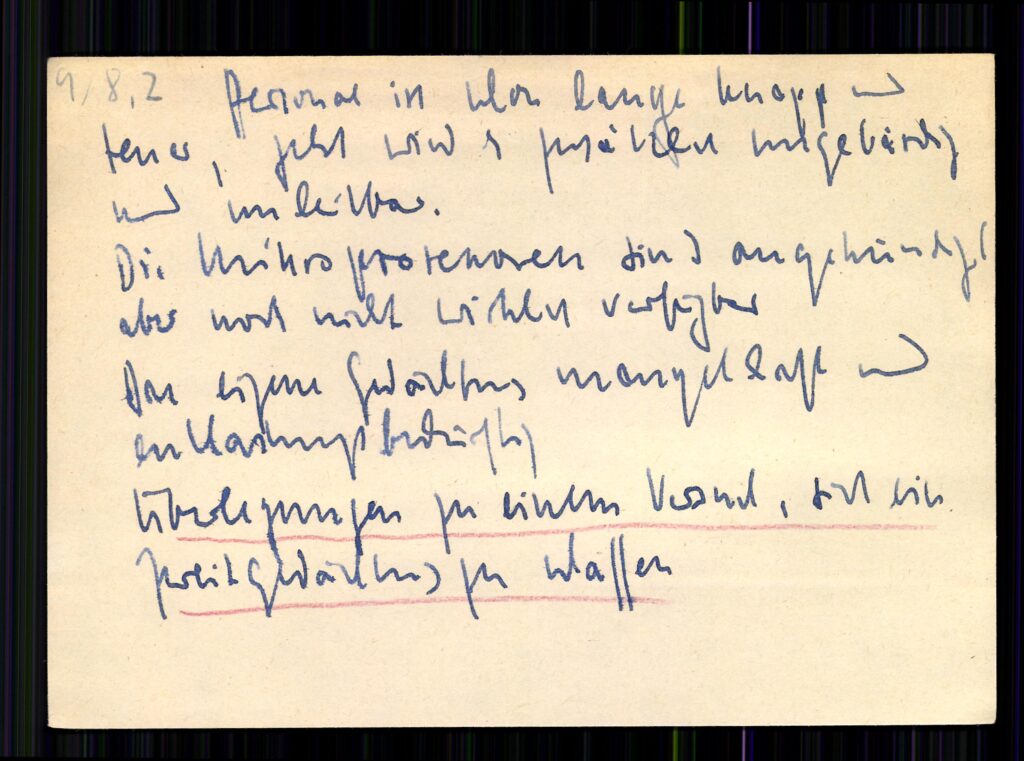 9/8,2 Personal ist schon lange knapp und
teuer, jetzt wird es zusätzlich ungebärdig
und unleitbar.
Die Mikroprozessoren sind angekündigt
aber noch nicht wirklich verfügbar
Das eigene Gedächtnis mangelhaft und
entlastungsbedürftig
Überlegungen zu einem Versuch, sich ein
Zweitgedächtnis zu schaffen